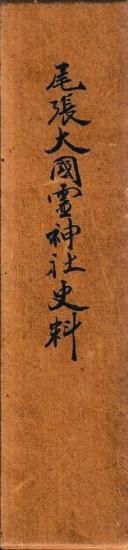 尾張大國霊神社史料